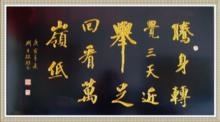 騰身轉
覺三天近
舉足
回看萬
嶺低